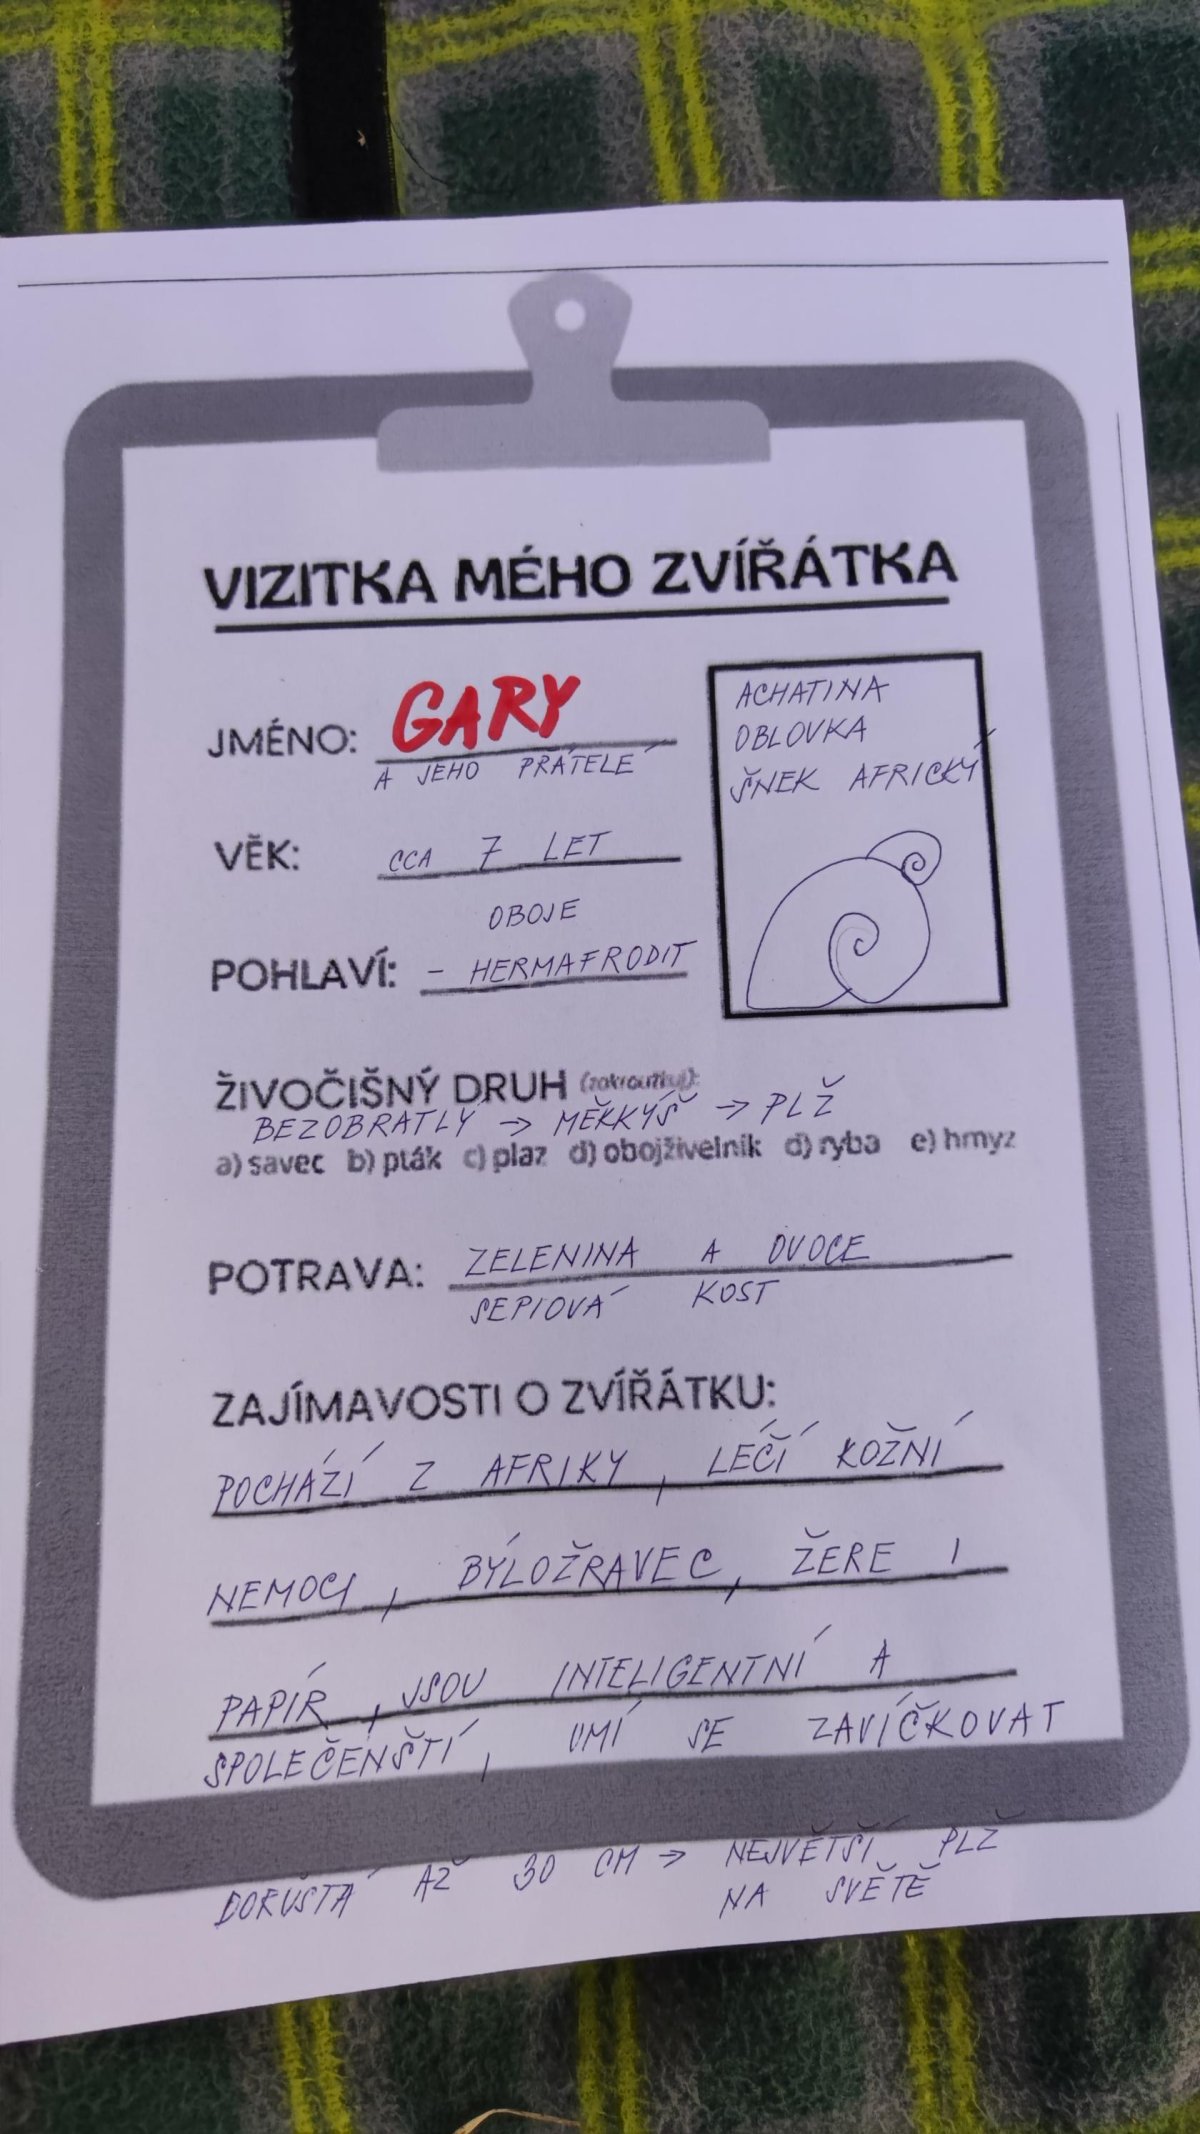 VIZITKA MÉHO ZVÍŘÁTKA
JMÉNO: GARY
A JEHO PŘÁTELÉ
ACHATINA
OBLOVKA
ŠNEK AFRICKÝ
VĚK: CCA 7 LET
OBOJE
POHLAVÍ: - HERMAFRODIT
ŽIVOČIŠNÝ DRUH (zakroužkuj):
BEZOBRATLÝ → MĚKKÝŠ → PLŽ
a) savec b) pták c) plaz d) obojživelník d) ryba e) hmyz
POTRAVA: ZELENINA A OVOCE
SEPIOVÁ KOST
ZAJÍMAVOSTI O ZVÍŘÁTKU:
POCHÁZÍ Z AFRIKY, LÉČÍ KOŽNÍ
NEMOCI, BÝLOŽRAVEC, ŽERE I
PAPÍR, JSOU INTELIGENTNÍ A
SPOLEČENŠTÍ, UMÍ SE ZAVÍČKOVAT
DORŮSTÁ AŽ 30 CM → NEJVĚTŠÍ PLŽ
NA SVĚTĚ